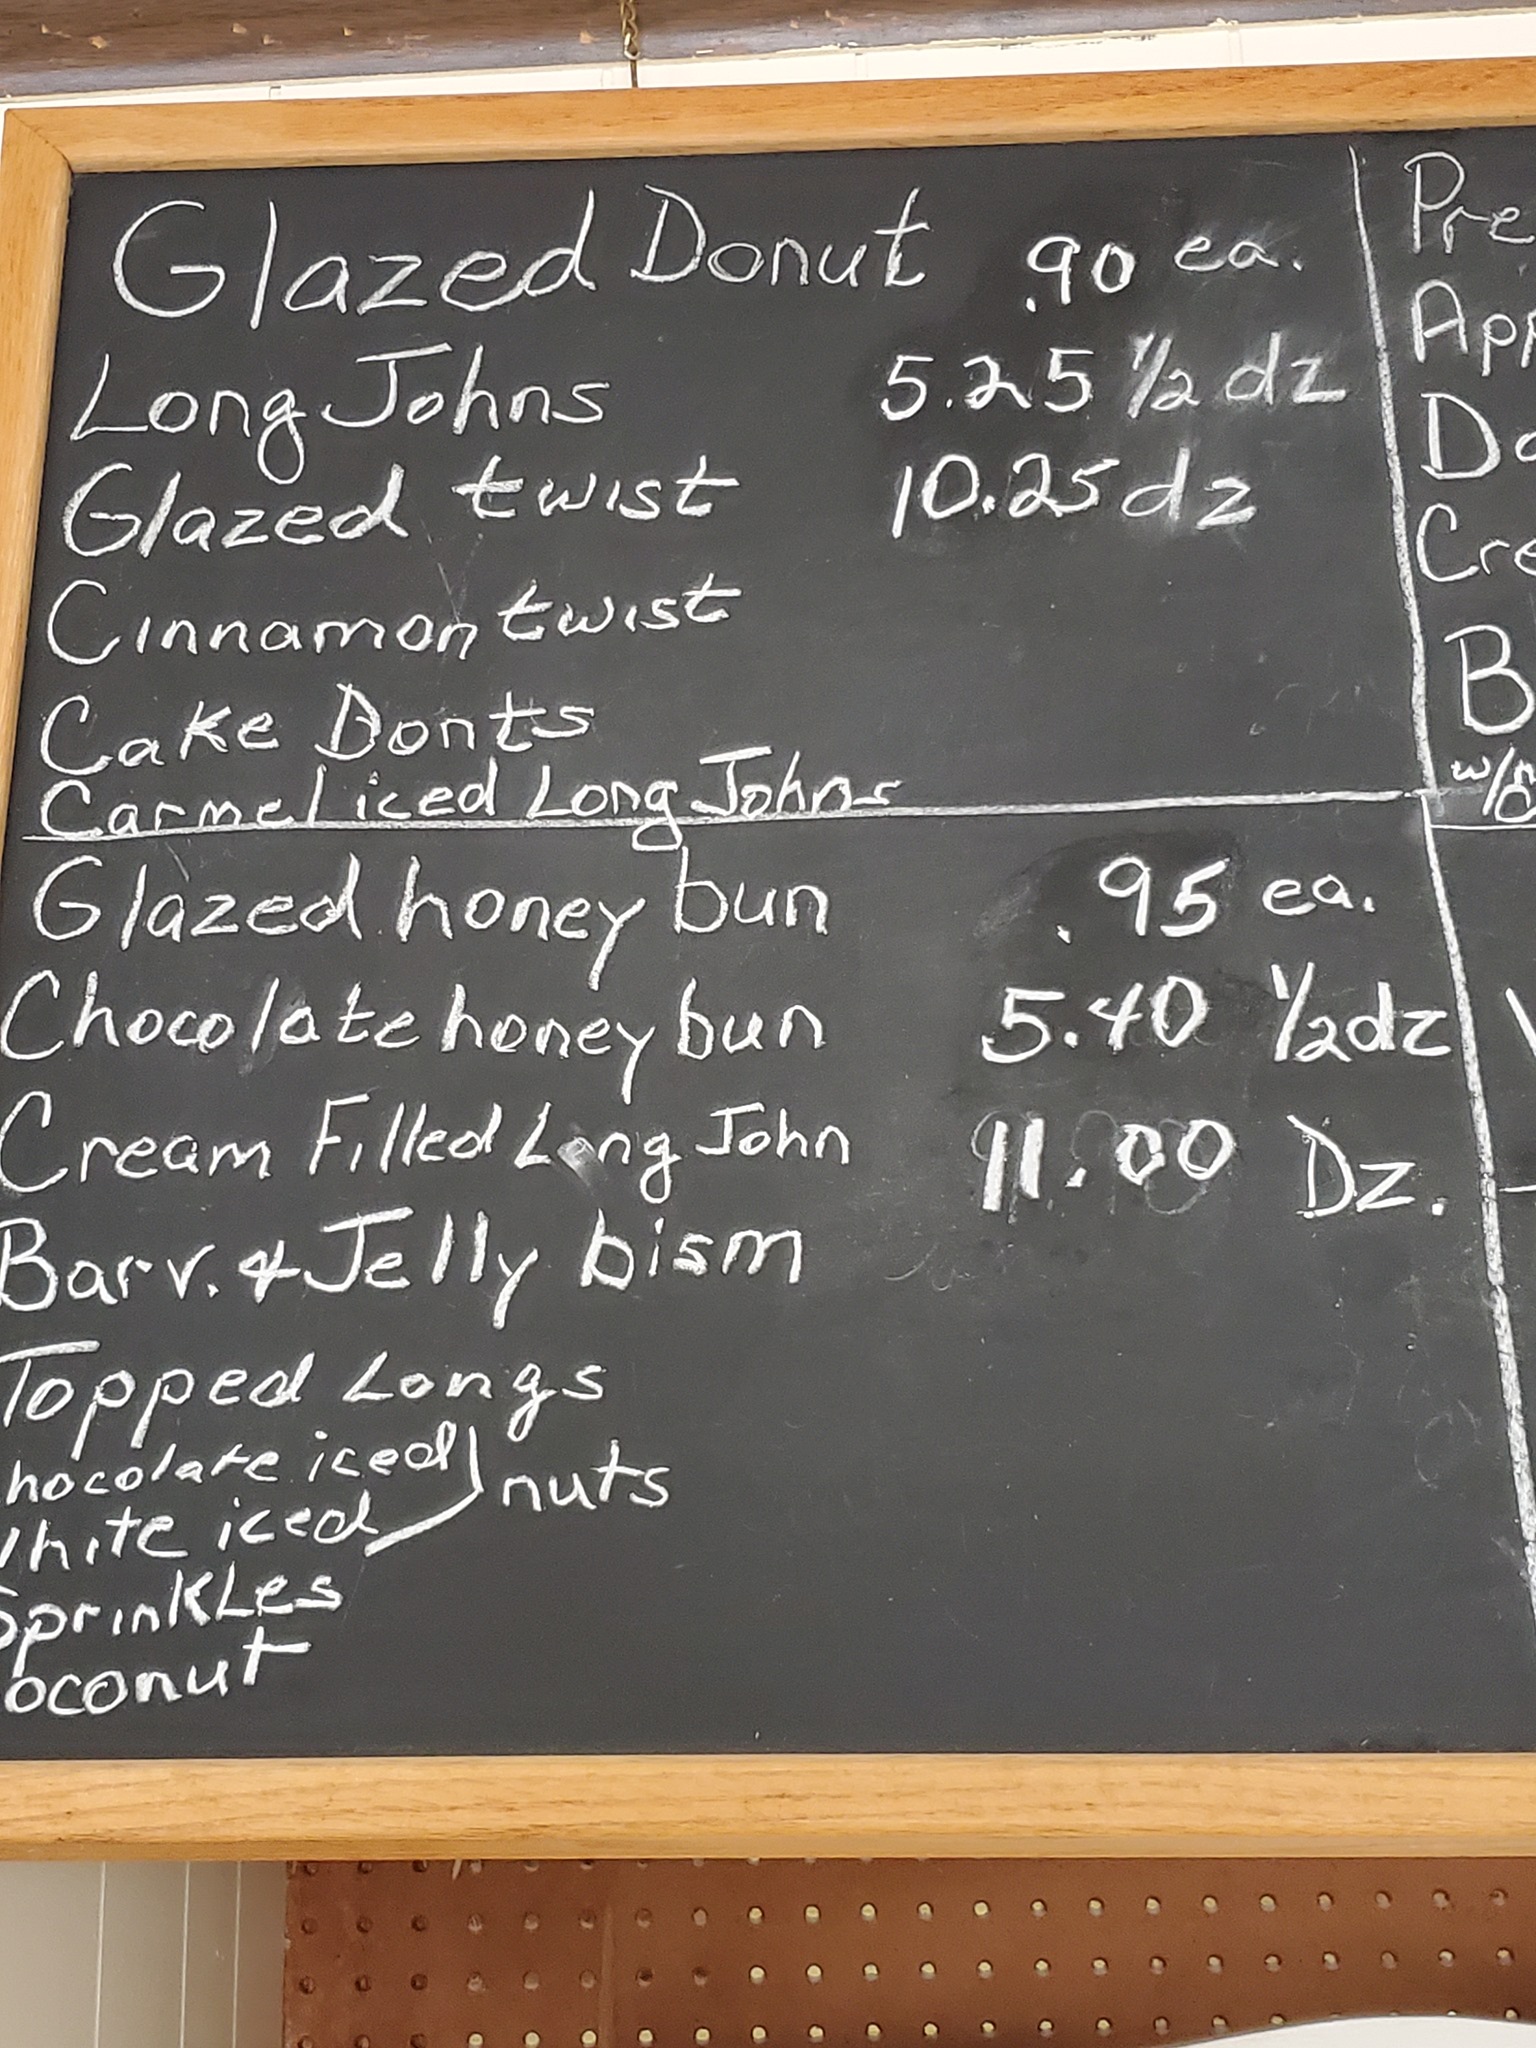 Glazed Donut .90 ea.
Long Johns 5.25 1/2 dz
Glazed twist 10.25 dz
Cinnamon twist
Cake Donts
Carmel iced Long Johns
Glazed honey bun .95 ea.
Chocolate honey bun 5.40 1/2 dz
Cream Filled Long John 11.00 Dz.
Barv. & Jelly bism
Topped Longs
hocolate iced
nuts
White iced
Sprinkles
oconut
Pre
App
Do
Cre
B